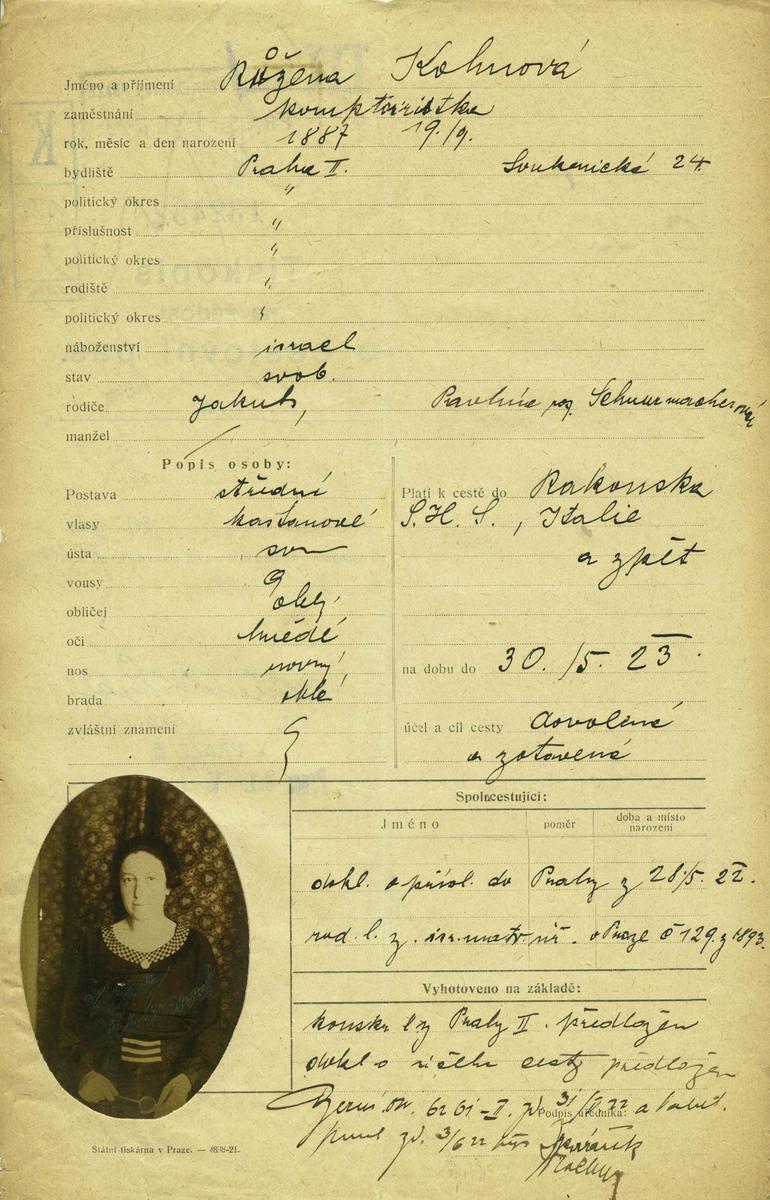 Jméno a příjmení Růžena Kohnová
zaměstnání komptoiristka
rok, měsíc a den narození 1887 19./9.
bydliště Praha II. Soukenická 24
politický okres "
příslušnost "
politický okres "
rodiště "
politický okres "
náboženství israel
stav svob.
rodiče Jakub, Pavlína roz. Schnurmacherová
manžel
Popis osoby:
Postava střední
vlasy kaštanové
ústa
vousy
obličej obly
oči hnědé
nos rovný
brada oblá
zvláštní znamení
Platí k cestě do Rakouska
S.H.S., Italie
a zpět
na dobu do 30./5. 23.
účel a cíl cesty dovolená
a zotavená
Spolucestující:
Jméno poměr doba a místo narození
dokl. o přísl. do Prahy z 28/5. 22.
rod. l. z. isr. matr. úř. v Praze č 129. z 1893.
Vyhotoveno na základě:
konskr. l z Prahy II. předložen
dokl o účelu cesty předložen
6261-II. 31/V 22 a
Podpis úředníka:
3/6 22
Státní tiskárna v Praze. — -21.